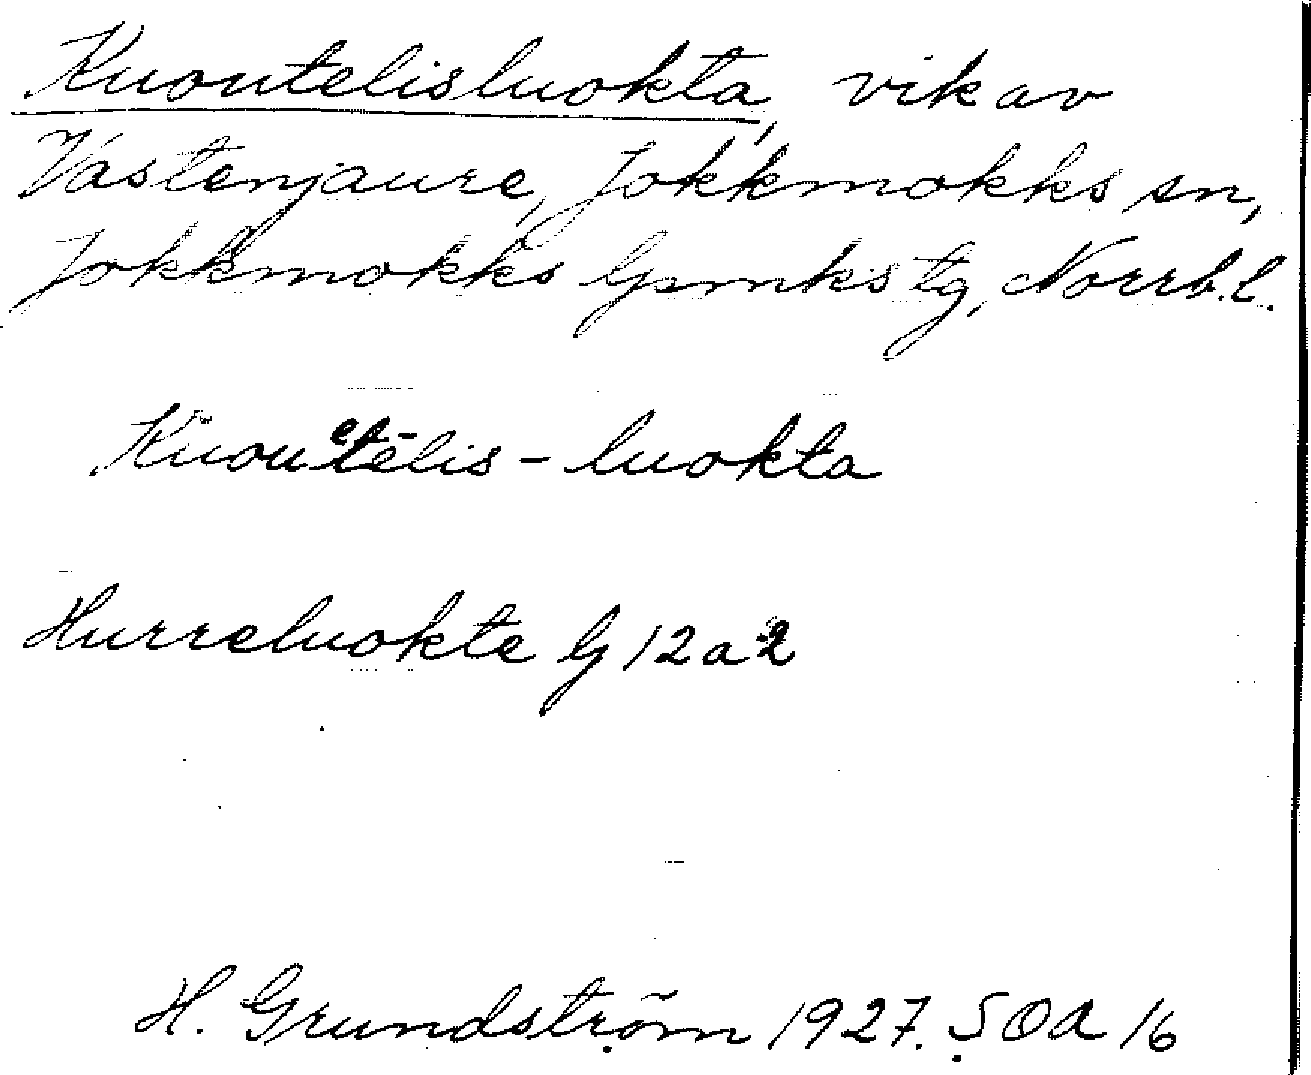 Kuoutelisluokta, vik av
Vastenjaure, Jokkmokks sn,
Jokkmokks lpmks tg, Norrb.l.
Kuouᵉtēlis - luokta
Hurreluokte G 12 a 2
H. Grundström 1927. SOA 16